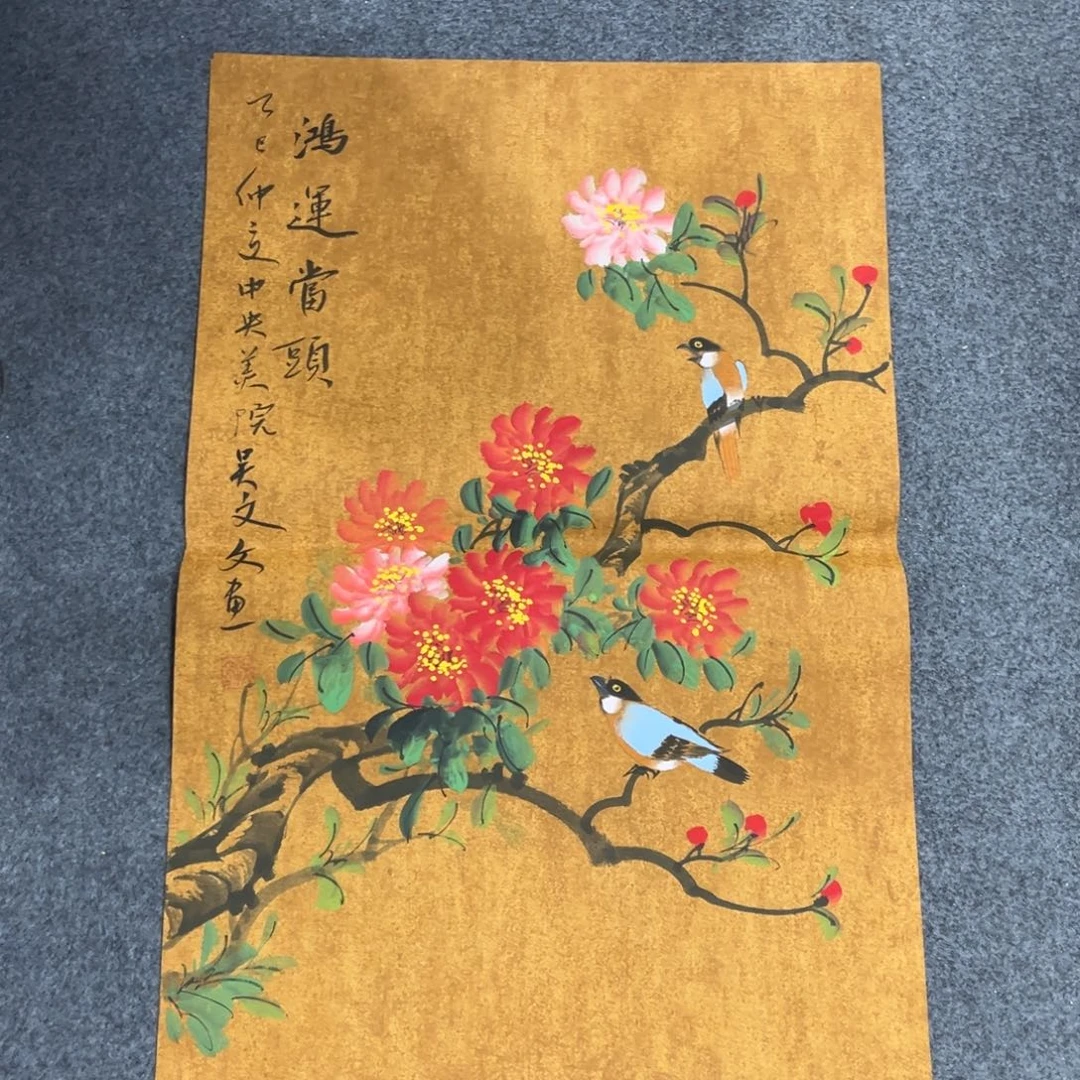 鴻運當頭
乙巳仲立中央美院吴文文画